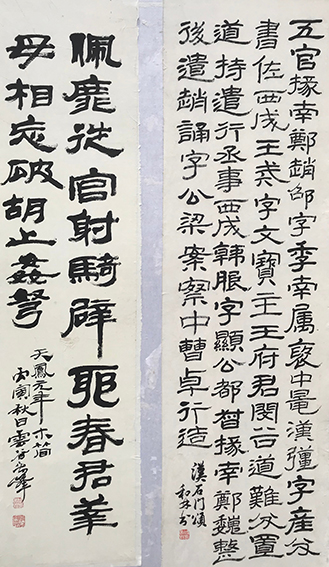 五官掾南鄭趙邵字季南属褒中鼂漢彊字産分
書佐西戌王戒字文寶主王府君閔谷道難分置
道持遣行丞事西戌韓朖字顯公都督掾南鄭魏整
後遣趙誦字公梁案察中曹卓行造
漢石門頌
佩鹿從官射騎辟耶春君幸
毋相忘破胡上弩
天鳳元年木簡
丙寅秋日